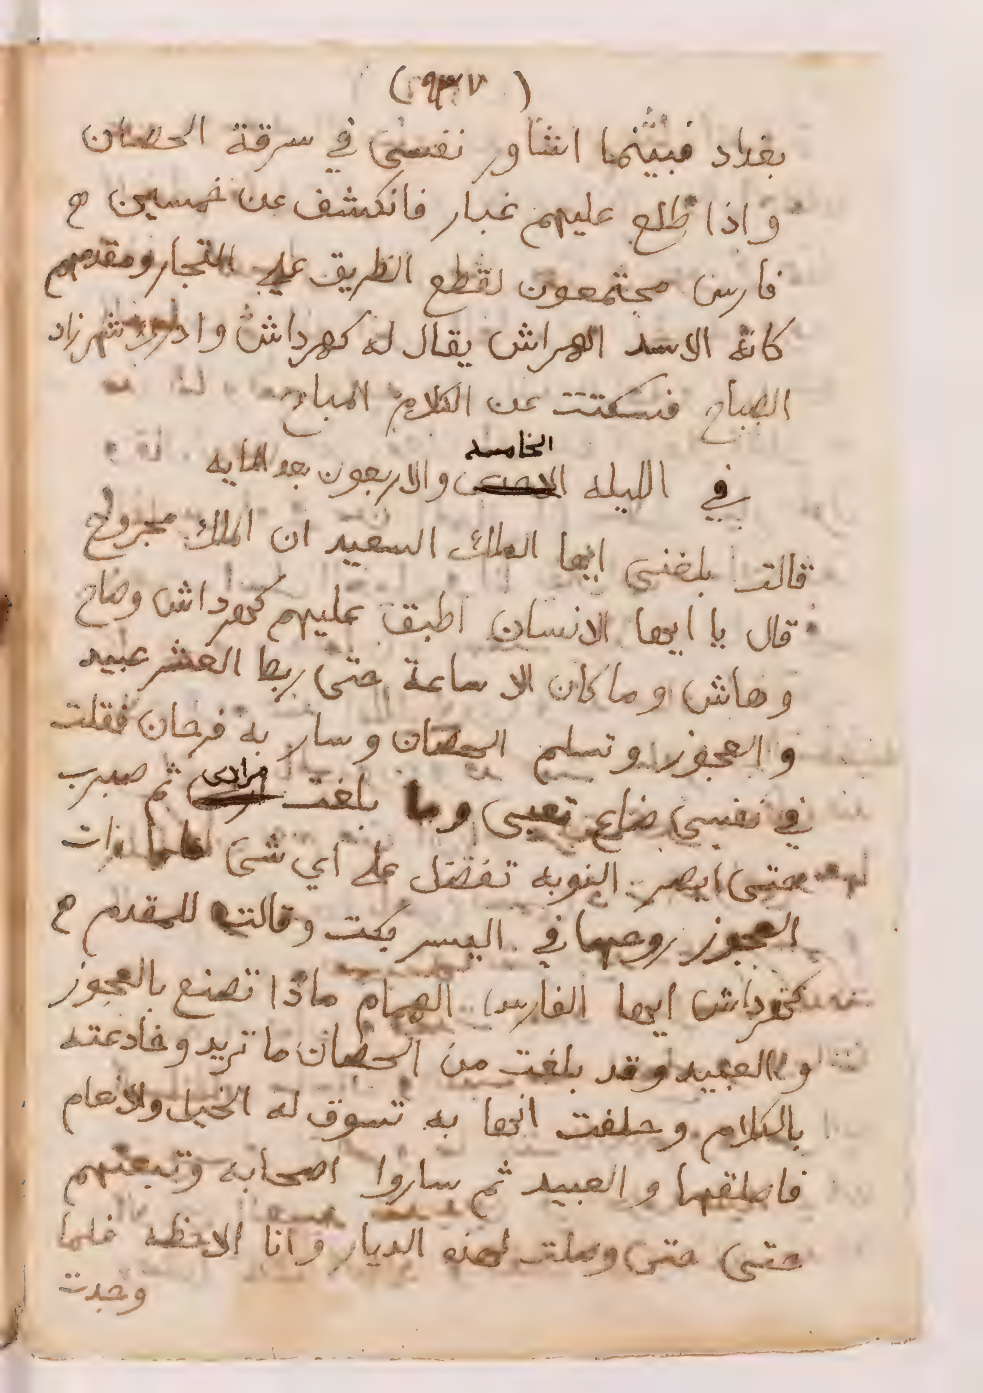 (٩٣٧)
بغداد فبينما اشاور نفسي في سرقة الحصان
و اذا طلع عليهم غبار فانكشف عن خمسين ح
فارس مجتمعون لقطع الطريق علي التجار ومقدمهم
كانه الاسد الهراش يقال له كهرداش وادرك شهرزاد
الصباح فسكتت عن الكلام المباح
في الليله الخامسه والاربعون بعد المايه
قالت بلغني ايها الملك السعيد ان الملك مجروح
قال يا ايها الانسان اطبق عليهم كهرداش وصاح
وهاش وما كان الا ساعة حتى ربط العشر عبيد
و العجوز وتسلم الحصان وسار به فرحان فقلت
في نفسي ضاع تعبي وما بلغت مرادي ثم صبرت
حتى ابصر النوبه تفضل علي اي شي فلما رات
العجوز روحها في اليسر بكت وقالت للمقدم ح
كهرداش ايها الفارس الهمام ماذا تصنع بالعجوز
والعبيد وقد بلغت من الحصان ما تريد وخادعته
بالكلام وحلفت انها به تسوق له الخيل والانعام
فاطلقها و العبيد ثم ساروا اصحابه وتبعتهم
حتى حتى وصلت لهذه الديار وانا الاحظه فلما
وجدت